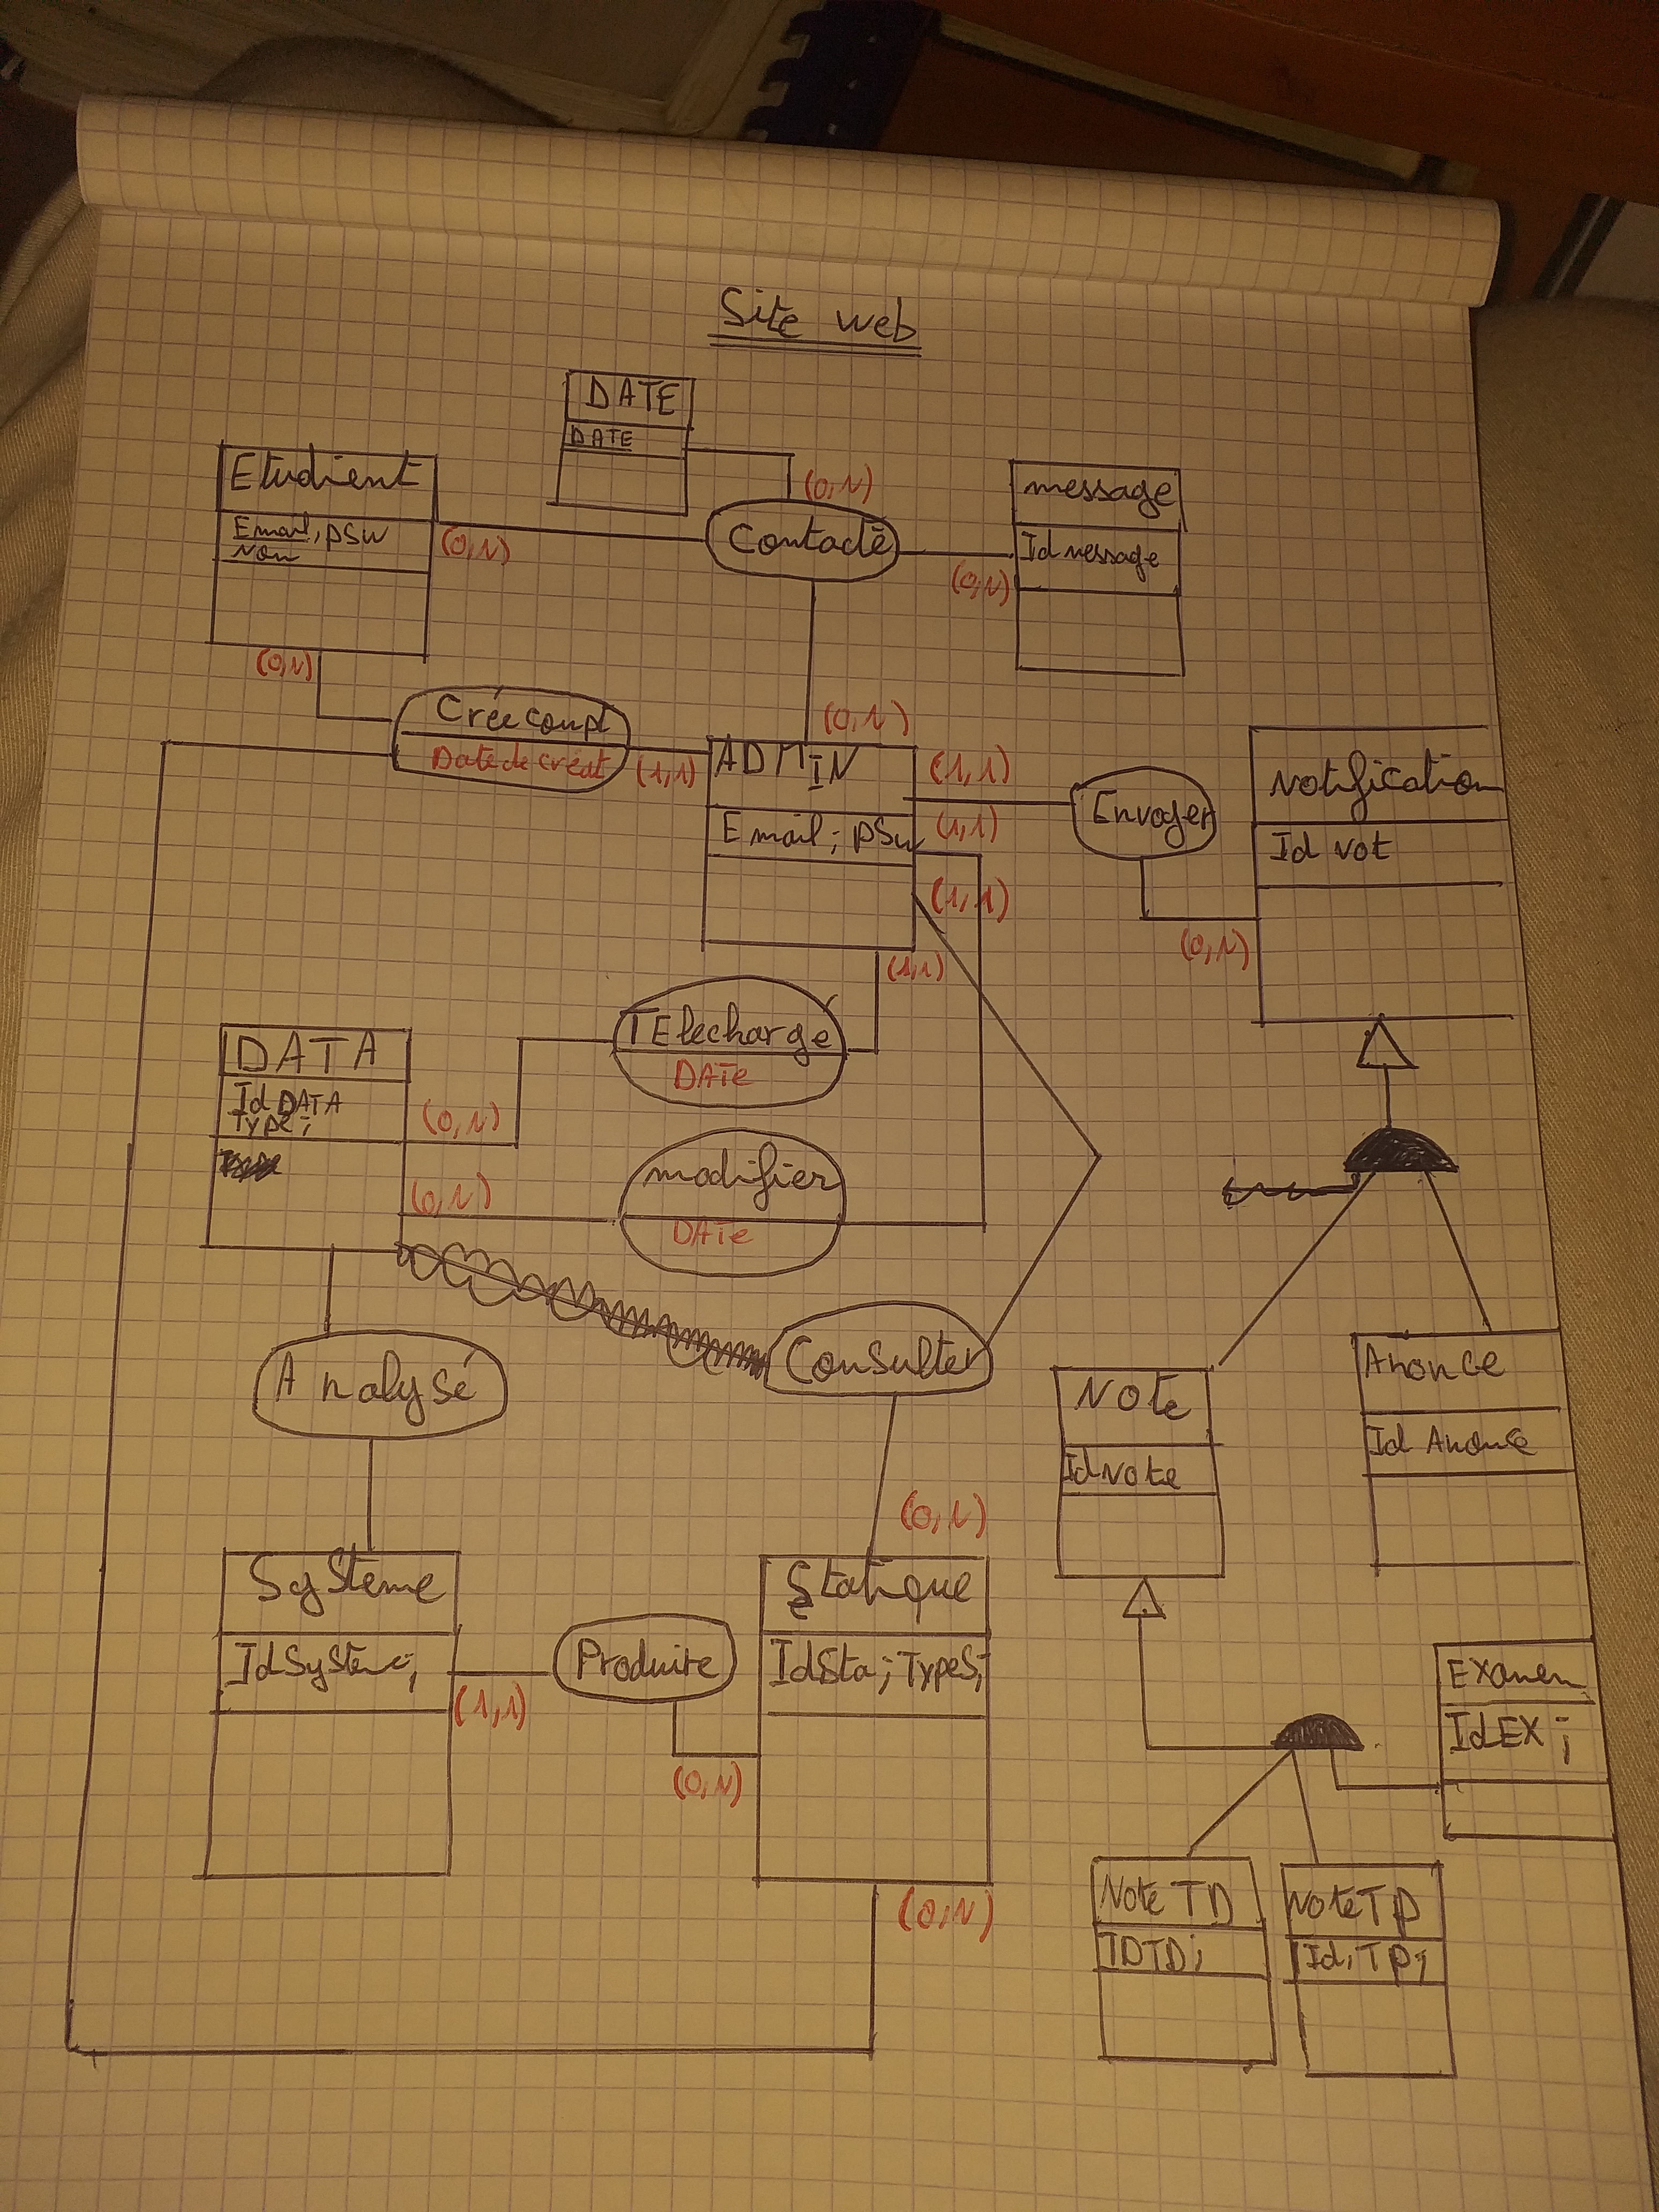 Site web
DATE
DATE
Etudient
Email; psw
Nom
(0,N)
(0,N)
Contacté
message
Id message
(0,N)
(0,N)
Crée compt
Date de créat
(1,1)
(0,N)
ADMIN
Email; psw
(1,1)
(1,1)
(1,1)
(1,1)
Envoyer
Notification
Id Not
(0,N)
TElecharge
DATe
DATA
Id DATA
Type;
(0,N)
(0,N)
modifier
DATe
Analysé
Consulter
Note
IdNote
Anonce
Id Anonce
(0,N)
Systeme
IdSysteme;
(1,1)
Produire
(0,N)
Statique
IdSta; TypeS;
(0,N)
Examen
IdEX;
Note TD
IDTD;
NoteTP
Id;TP;